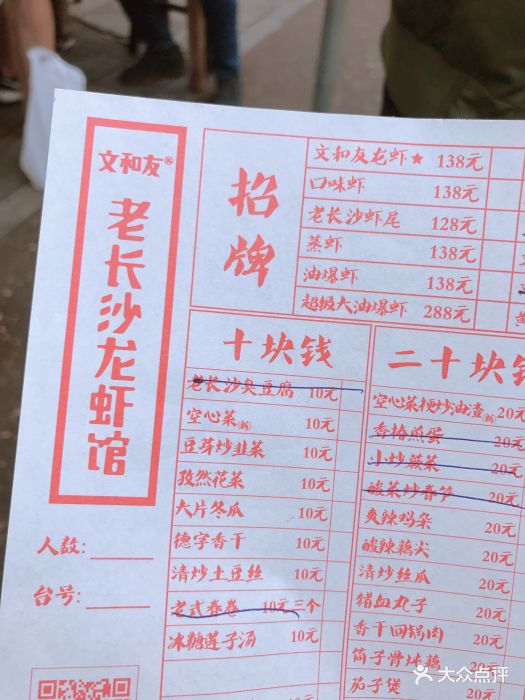 文和友®
老长沙龙虾馆
人数：
台号：
招牌
文和友龙虾★ 138元
口味虾 138元
老长沙虾尾 128元
蒸虾 138元
油爆虾 138元
超级大油爆虾 288元
十块钱
老长沙臭豆腐 10元
空心菜(新) 10元
豆芽炒韭菜 10元
孜然花菜 10元
大片冬瓜 10元
德字香干 10元
清炒土豆丝 10元
老式春卷 10元三个
冰糖莲子汤 10元
二十块钱
空心菜梗炒油渣(新) 20元
香椿煎蛋 20元
小炒蕨菜 20元
酸菜炒春笋 20元
爽辣鸡杂 20元
酸辣藕尖 20元
清炒丝瓜 20元
猪血丸子 20元
香干回锅肉 20元
筒子骨炖藕 20元
茄子煲
大众点评